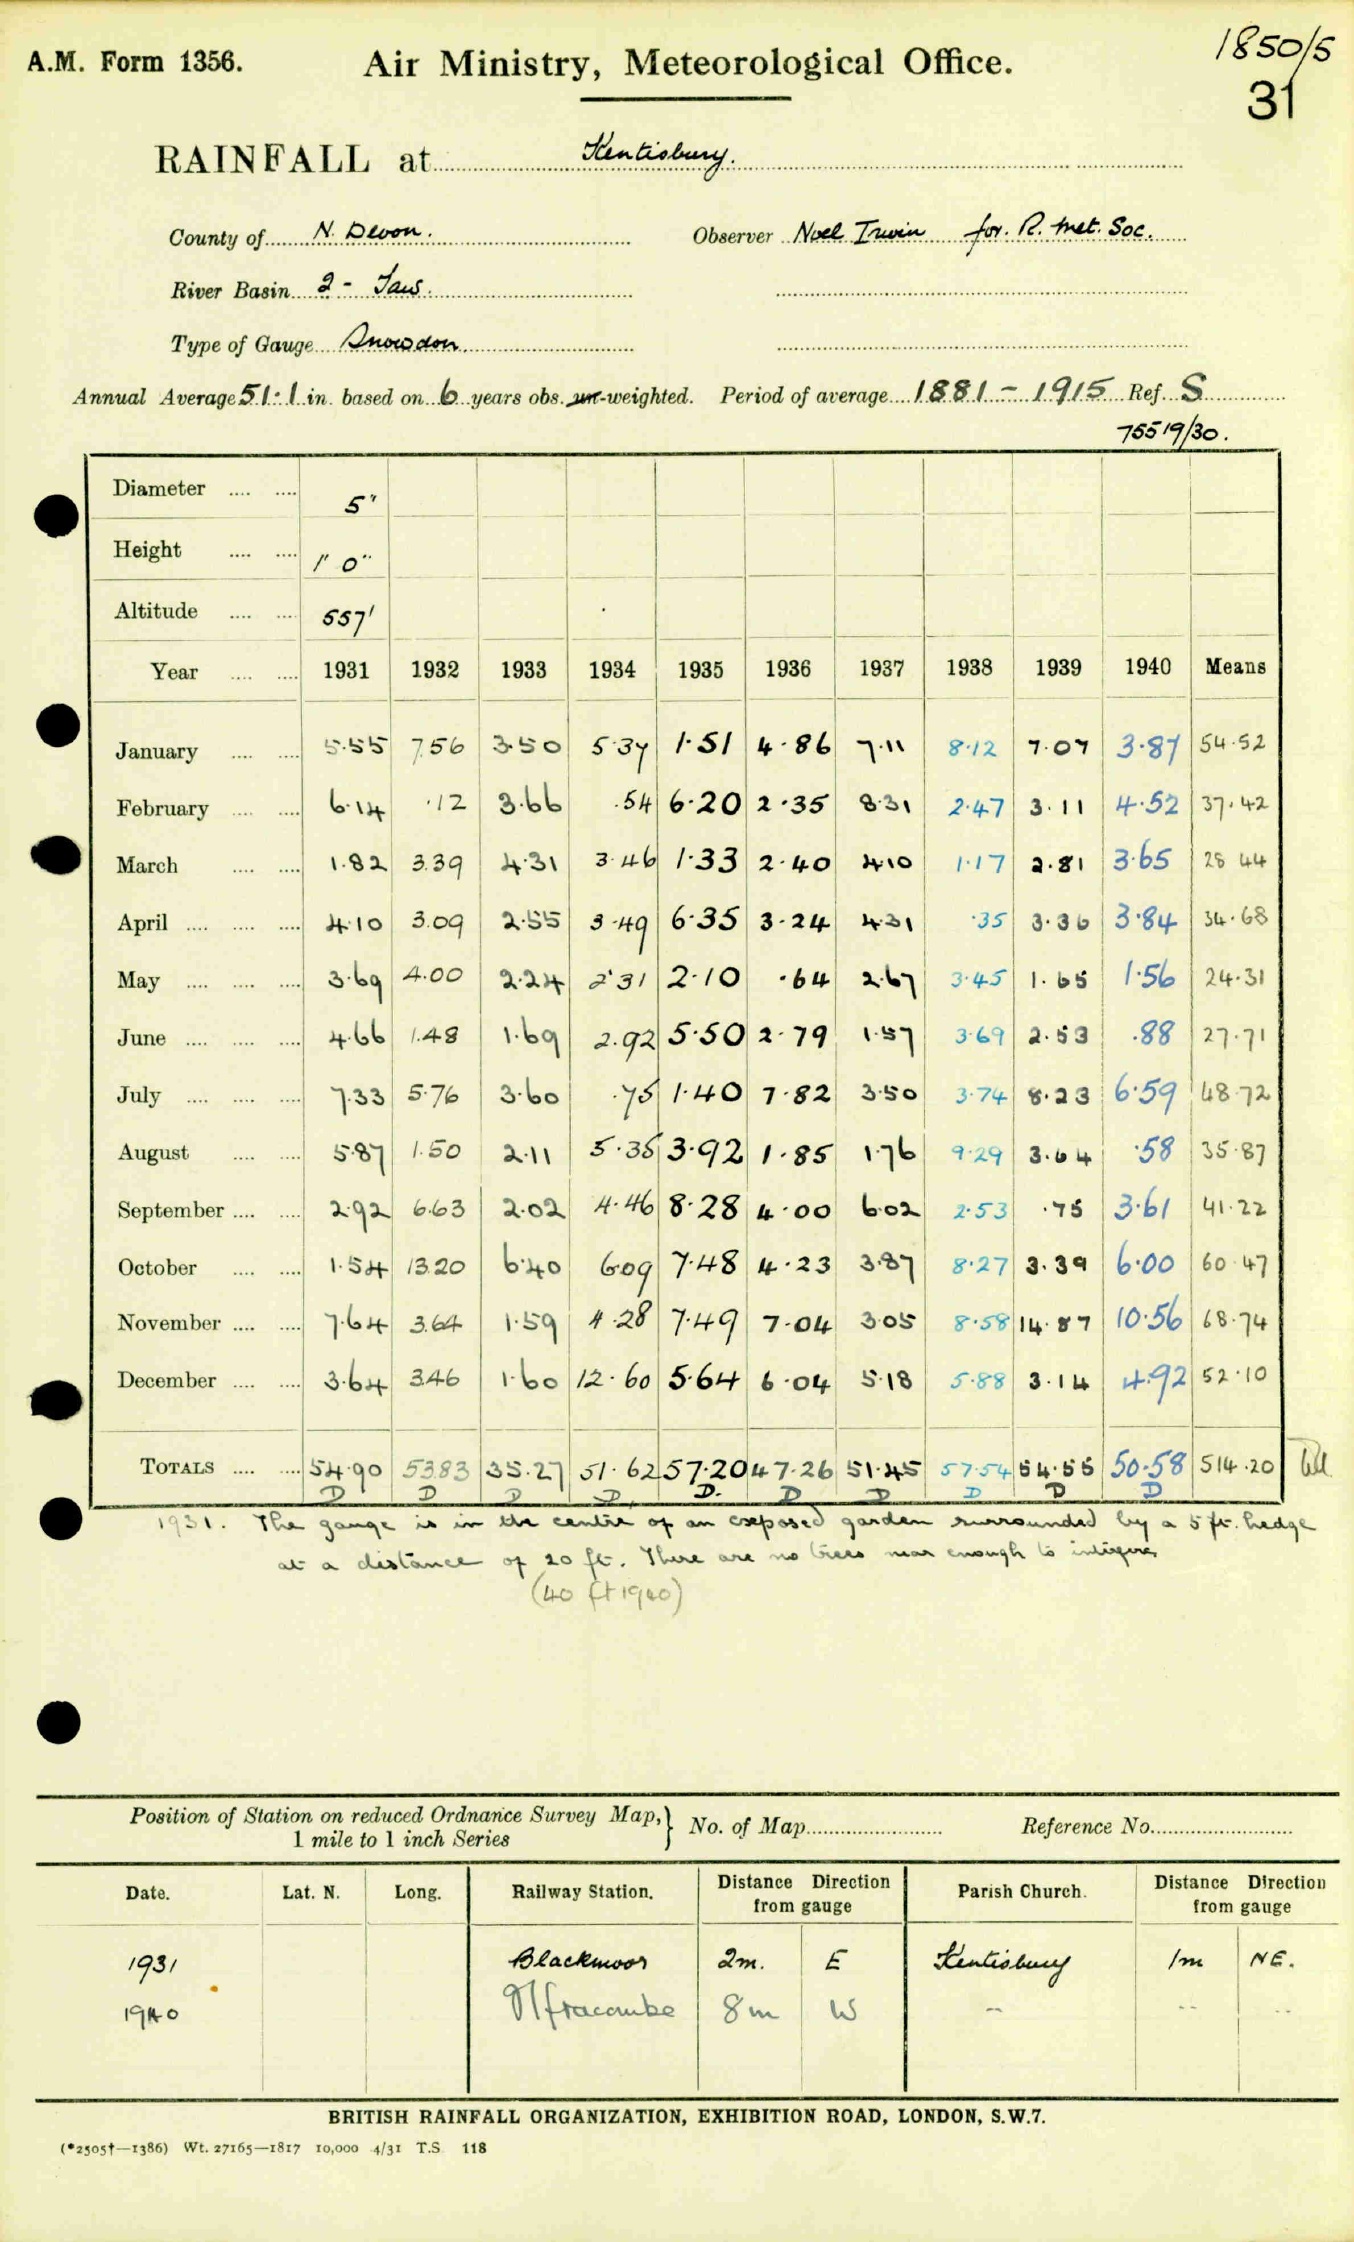 1850/5
A.M. Form 1356. Air Ministry, Meteorological Office. 31
RAINFALL at Kentisbury.
County of N. Devon. Observer Noel Irwin for. R. Met. Soc.
River Basin 2 - Taw.
Type of Gauge Snowdon
Annual Average 51.1 in. based on 6 years obs. un-weighted. Period of average 1881 - 1915 Ref. S
75519/30.
Diameter .... .... 5"
Height .... .... 1' 0"
Altitude .... .... 557'
Year .... .... 1931 1932 1933 1934 1935 1936 1937 1938 1939 1940 Means
January .... .... 5.55 7.56 3.50 5.37 1.51 4.86 7.11 8.12 7.07 3.87 54.52
February .... .... 6.14 .12 3.66 .54 6.20 2.35 8.31 2.47 3.11 4.52 37.42
March .... .... 1.82 3.39 4.31 3.46 1.33 2.40 4.10 1.17 2.81 3.65 28 44
April .... .... .... 4.10 3.09 2.55 3.49 6.35 3.24 4.31 .35 3.36 3.84 34.68
May .... .... .... 3.69 4.00 2.24 2.31 2.10 .64 2.67 3.45 1.65 1.56 24.31
June .... .... .... 4.66 1.48 1.69 2.92 5.50 2.79 1.57 3.69 2.53 .88 27.71
July .... .... .... 7.33 5.76 3.60 .75 1.40 7.82 3.50 3.74 8.23 6.59 48.72
August .... .... 5.87 1.50 2.11 5.35 3.92 1.85 1.76 9.29 3.64 .58 35.87
September .... .... 2.92 6.63 2.02 4.46 8.28 4.00 6.02 2.53 .75 3.61 41.22
October .... .... 1.54 13.20 6.40 6.09 7.48 4.23 3.87 8.27 3.39 6.00 60.47
November .... .... 7.64 3.64 1.59 4.28 7.49 7.04 3.05 8.58 14.87 10.56 68.74
December .... .... 3.64 3.46 1.60 12.60 5.64 6.04 5.18 5.88 3.14 4.92 52.10
TOTALS .... .... 54.90 53.83 35.27 51.62 57.20 47.26 51.45 57.54 54.55 50.58 514.20
D D D D D. D D D D D
1931. The gauge is in the centre of an exposed garden surrounded by a 5 ft. hedge
at a distance of 20 ft. There are no trees near enough to interfere
(40 ft 1940)
Position of Station on reduced Ordnance Survey Map, } No. of Map Reference No.
1 mile to 1 inch Series
Date. Lat. N. Long. Railway Station. Distance from gauge Direction Parish Church. Distance from gauge Direction
1931 Blackmoor 2m. E Kentisbury 1m NE.
1940 Ilfracombe 8m W - -- --
BRITISH RAINFALL ORGANIZATION, EXHIBITION ROAD, LONDON, S.W.7.
(*2505†—1386) Wt. 27165—1817 10,000 4/31 T.S. 118